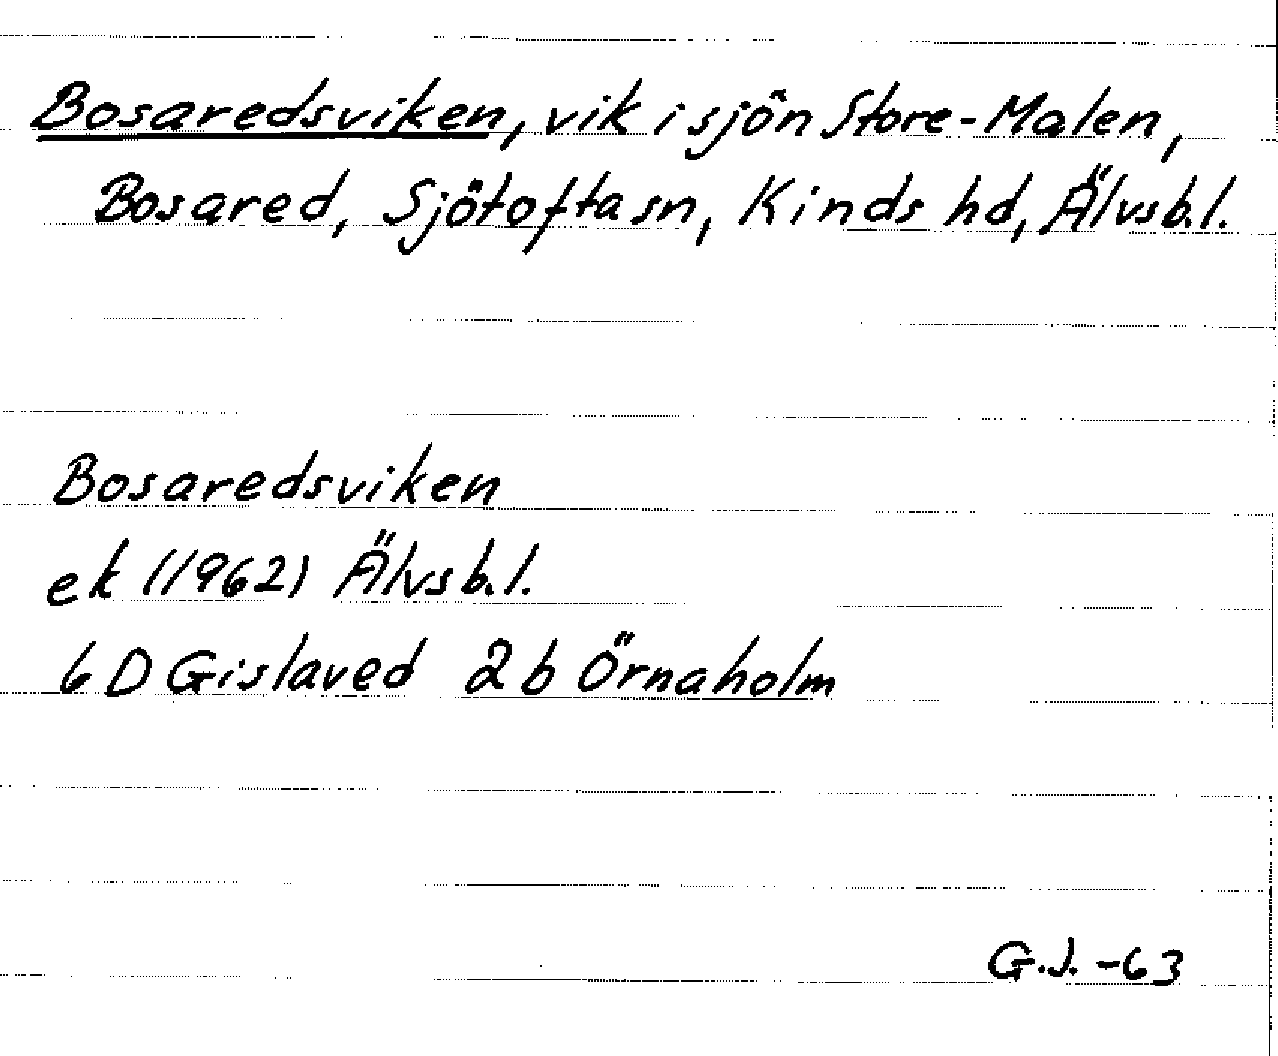 Bosaredsviken, vik i sjön Store-Malen,
Bosared, Sjötofta sn, Kinds hd, Älvsb.l.
Bosaredsviken
ek (1962) Älvsb.l.
6 D Gislaved 2 b Örnaholm
G.J. -63